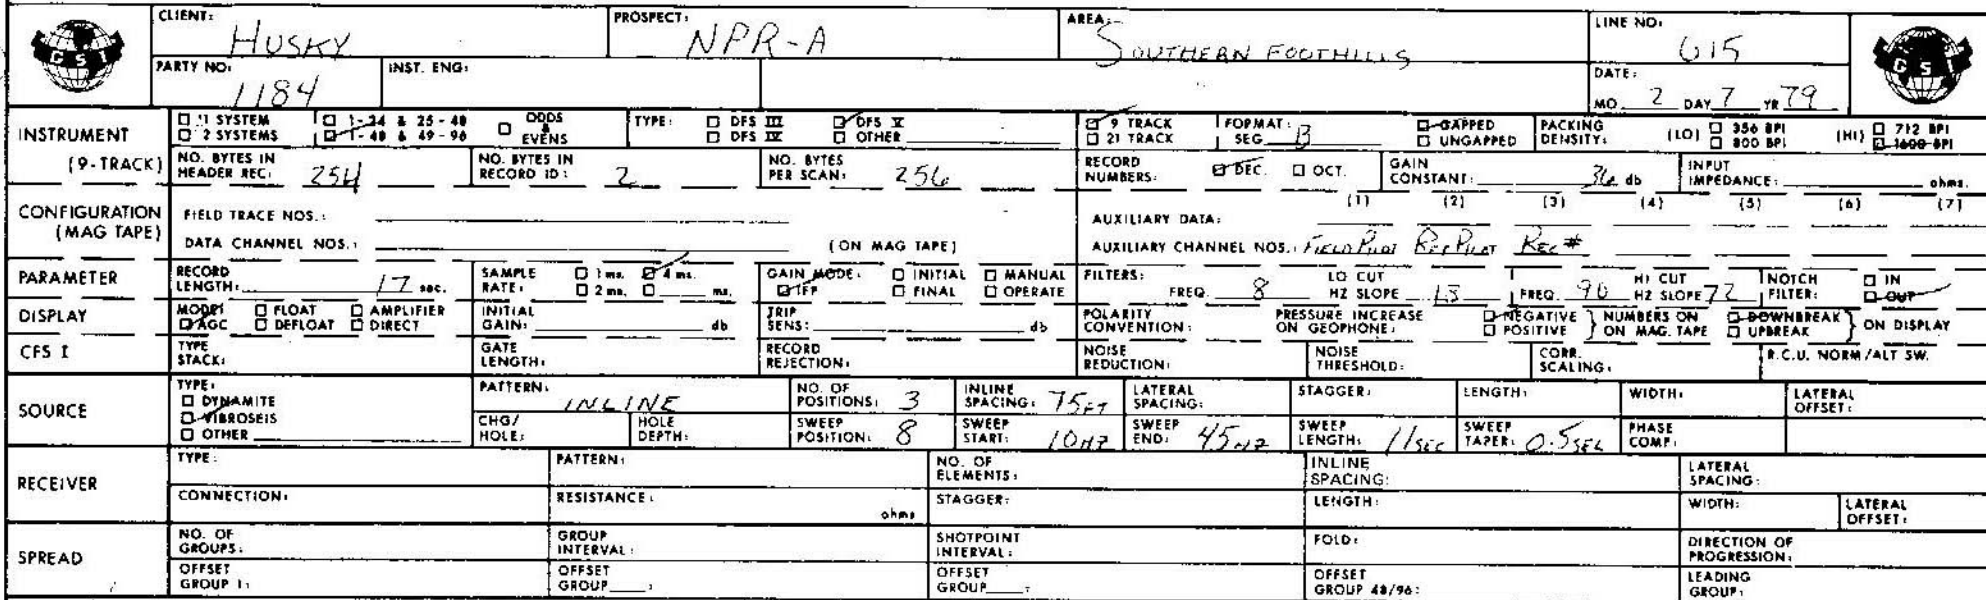 CLIENT: HUSKY PROSPECT: NPR-A AREA: SOUTHERN FOOTHILLS LINE NO: 615
GSI GSI
PARTY NO: 1184 INST. ENG: DATE: MO. 2 DAY 7 YR 79
INSTRUMENT (9-TRACK)
□ 1 SYSTEM □ 1-24 & 25-48 □ ODDS & EVENS TYPE: □ DFS III □ DFS V □ 9 TRACK FORMAT: SEG B □ GAPPED PACKING DENSITY: (LO) □ 356 BPI (HI) □ 712 BPI
□ 2 SYSTEMS □ 1-48 & 49-96 □ DFS IV □ OTHER □ 21 TRACK □ UNGAPPED □ 800 BPI □ 1600 BPI
NO. BYTES IN HEADER REC: 254 NO. BYTES IN RECORD ID: 2 NO. BYTES PER SCAN: 256 RECORD NUMBERS: □ DEC. □ OCT. GAIN CONSTANT: 36 db INPUT IMPEDANCE: ohms.
CONFIGURATION (MAG TAPE)
FIELD TRACE NOS.: AUXILIARY DATA: (1) (2) (3) (4) (5) (6) (7)
DATA CHANNEL NOS.: (ON MAG TAPE) AUXILIARY CHANNEL NOS.: FIELD PILOT REF PILOT REC #
PARAMETER RECORD LENGTH: 17 sec. SAMPLE RATE: □ 1 ms. □ 4 ms. GAIN MODE: □ INITIAL □ MANUAL FILTERS: LO CUT HI CUT NOTCH FILTER: □ IN
□ 2 ms. □ ms. □ IFP □ FINAL □ OPERATE FREQ. 8 HZ SLOPE 18 FREQ. 90 HZ SLOPE 72 □ OUT
DISPLAY MODE: □ FLOAT □ AMPLIFIER INITIAL GAIN: db TRIP SENS: db POLARITY CONVENTION: PRESSURE INCREASE ON GEOPHONE: □ NEGATIVE NUMBERS ON MAG. TAPE □ DOWNBREAK ON DISPLAY
□ AGC □ DEFLOAT □ DIRECT □ POSITIVE □ UPBREAK
CFS I TYPE STACK: GATE LENGTH: RECORD REJECTION: NOISE REDUCTION: NOISE THRESHOLD: CORR. SCALING: R.C.U. NORM/ALT SW.
SOURCE TYPE: □ DYNAMITE □ VIBROSEIS □ OTHER
PATTERN: INLINE NO. OF POSITIONS: 3 INLINE SPACING: 75 FT LATERAL SPACING: STAGGER: LENGTH: WIDTH: LATERAL OFFSET:
CHG/HOLE: HOLE DEPTH: SWEEP POSITION: 8 SWEEP START: 10 HZ SWEEP END: 45 HZ SWEEP LENGTH: 11 SEC SWEEP TAPER: 0.5 SEC PHASE COMP:
RECEIVER TYPE: PATTERN: NO. OF ELEMENTS: INLINE SPACING: LATERAL SPACING:
CONNECTION: RESISTANCE: ohms STAGGER: LENGTH: WIDTH: LATERAL OFFSET:
SPREAD NO. OF GROUPS: GROUP INTERVAL: SHOTPOINT INTERVAL: FOLD: DIRECTION OF PROGRESSION:
OFFSET GROUP 1: OFFSET GROUP : OFFSET GROUP : OFFSET GROUP 48/96: LEADING GROUP: